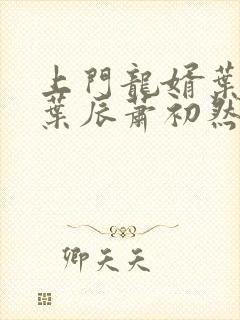 上門龍婿葉
葉辰蕭初然
卿天天